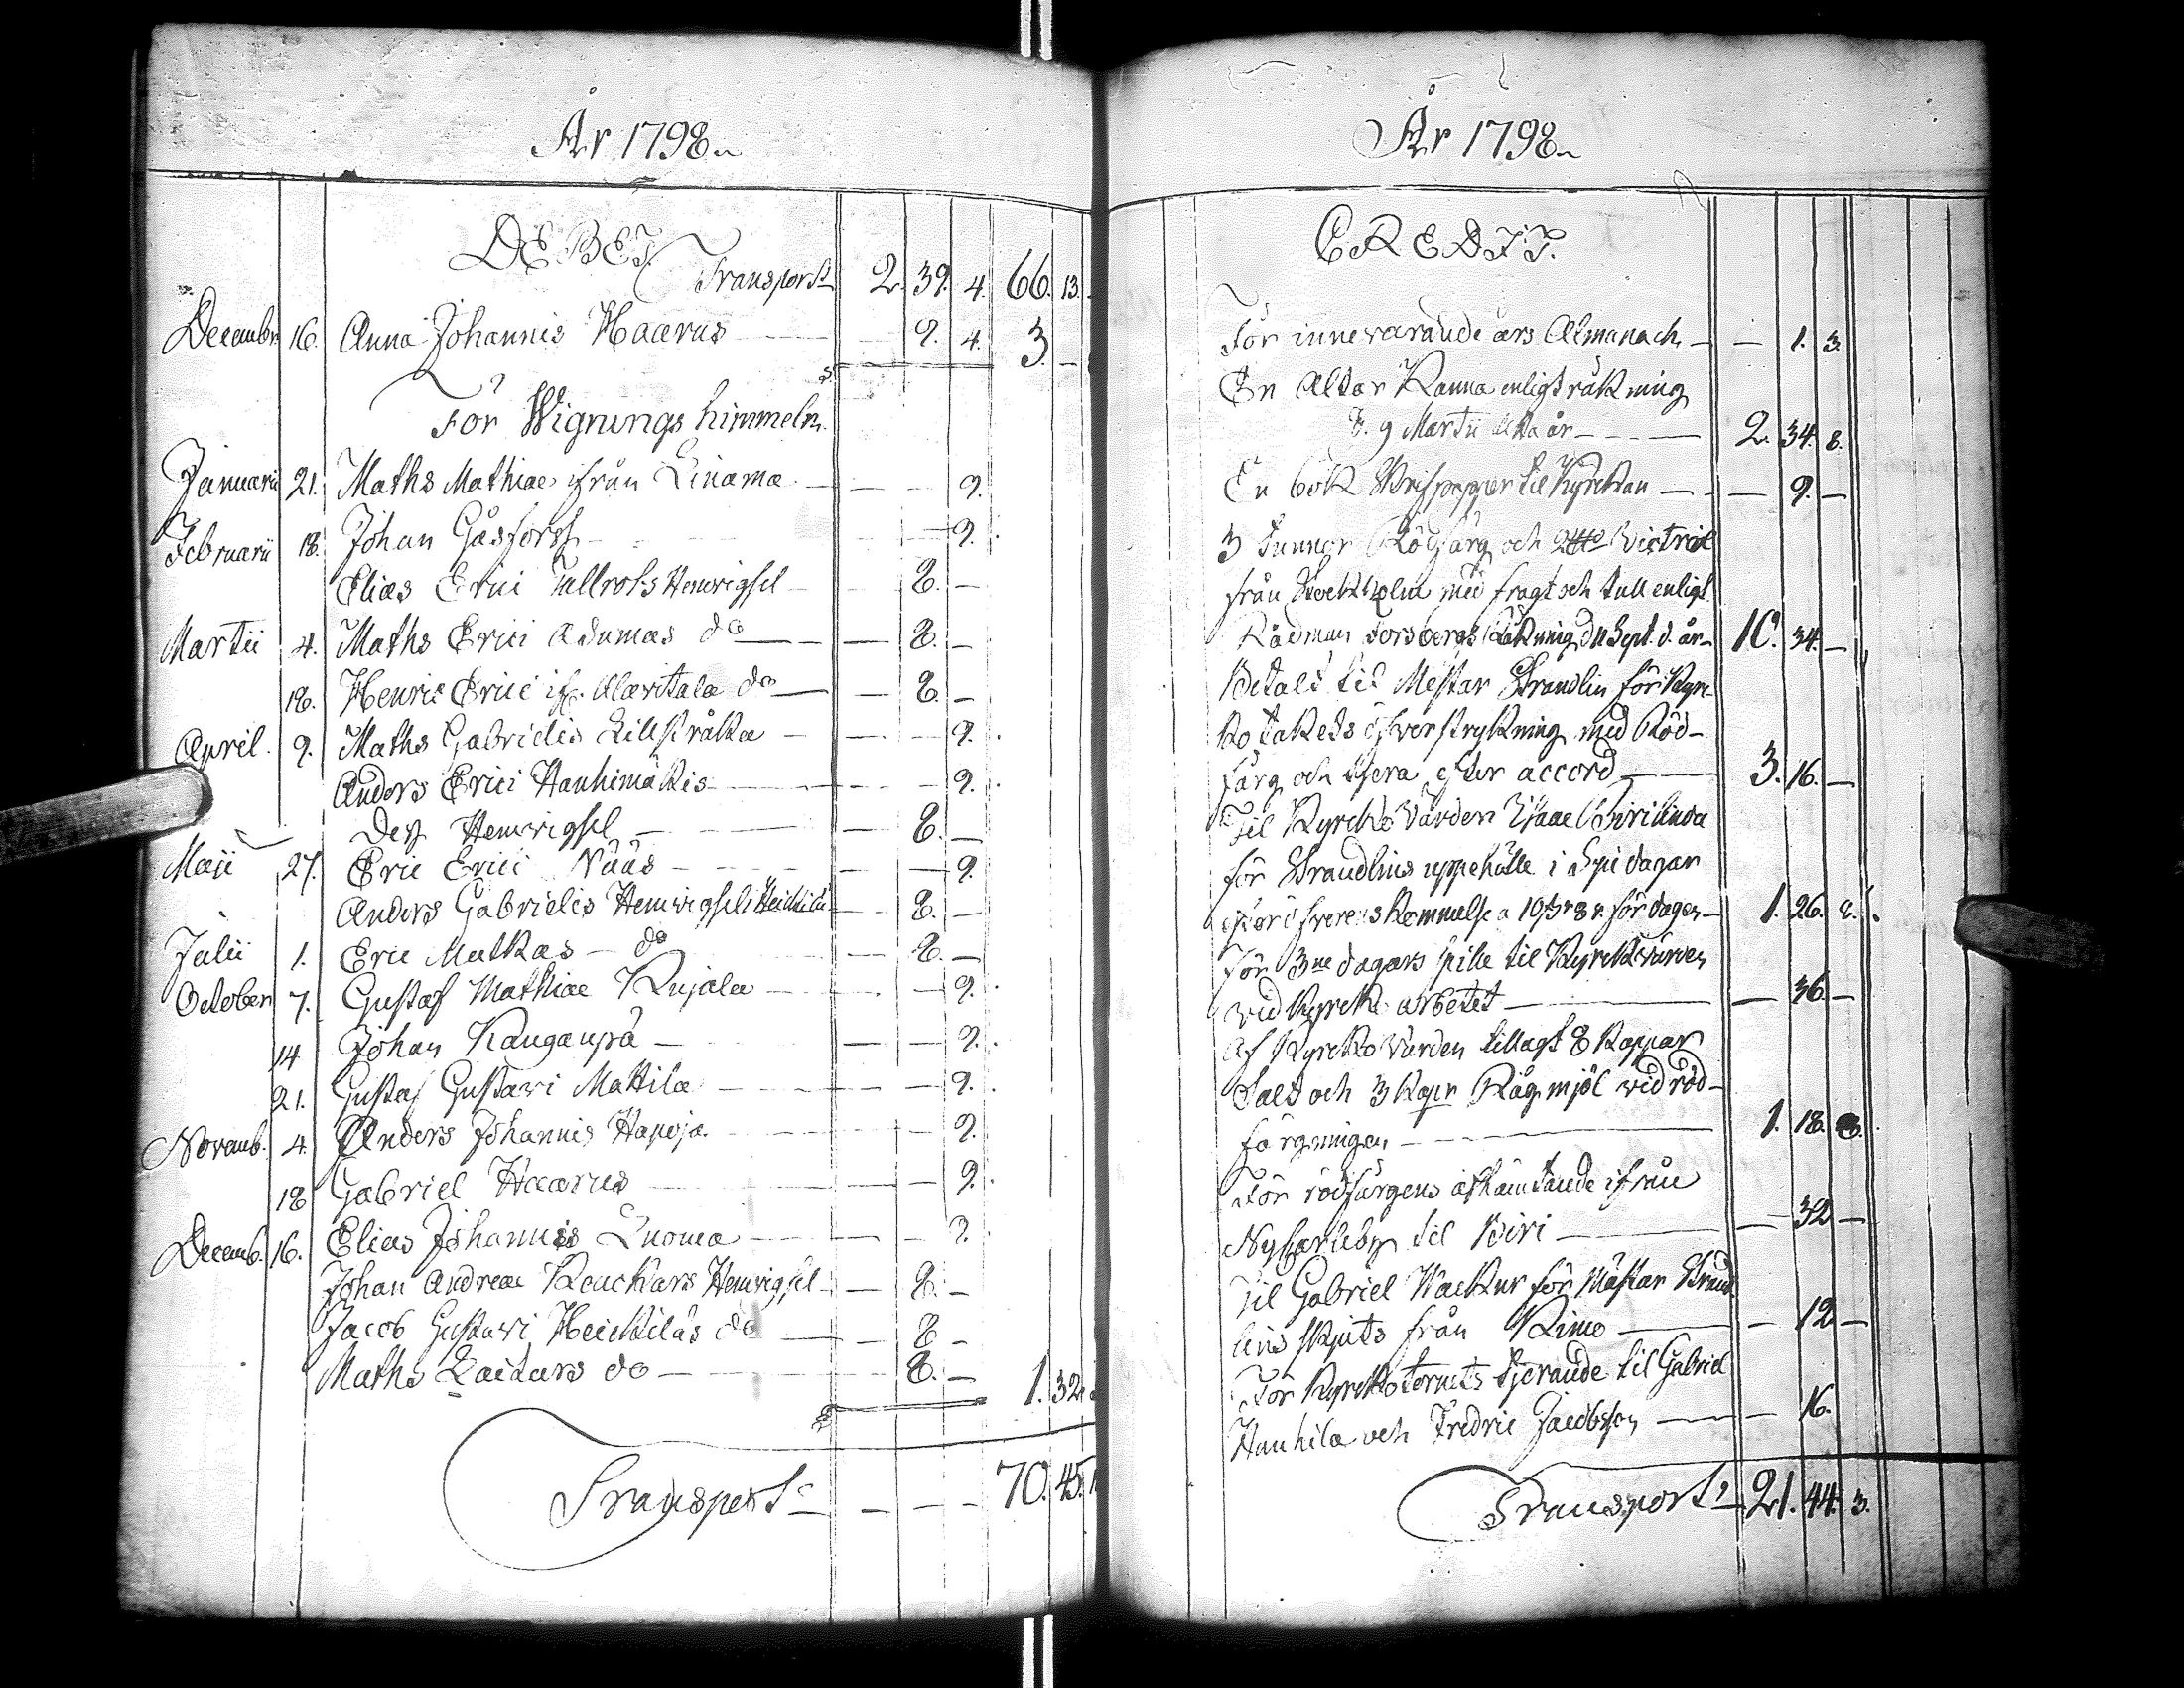 År 1798.
DEBET.
Transport 2. 39. 4. 66. 13.
Decembr 16. Anna Johannis Haarus — 9. 4. 3. —
För Wignings himmeln.
Januarii 21. Maths Mathiae ifrån Linama — 9.
Februarii 18. Johan Gåsforss — 9.
Elias Erici Tallrots Hemvigsel — 8. —
Martii 4. Maths Erici Adumas do — 8. —
18. Henric Erici if. Alavitala do — 8. —
April. 9. Maths Gabrielis Lillstråka — 9.
Anders Erici Hanhimäkis — 9.
Dess Hemvigsel — 8. —
Maji 27. Eric Erici Nääs — 9.
Anders Gabrielis Hemvigsel Heickilä — 8. —
Julii 1. Eric Matkas — do — 8. —
October 7. Gustaf Mathiae Kujala — 9.
14 Johan Kanganpä — 9.
21. Gustaf Gustavi Mattila — 9.
Novemb. 4. Anders Johannis Hapoja — 9.
18 Gabriel Haarus — 9.
Decemb. 16. Elias Johannis Luoma — 9.
Johan Andreae Kenckars Hemvigsel — 8. —
Jacob Gustavi Heickiläs do — 8 —
Maths Laitars do — 8. — 1. 32.
Transport — — — 70. 45.
År 1798.
CREDIT.
För innevarande års Almanach — — 1. 3.
En Altar Kanna enligt räkning
d. 9 Martii detta år — 2. 34. 8.
En bok Skrifpapper til Kyrckan — — 9. —
3 Tunnor Rödfärg och 2 Victril
från Stockholm med fragt och tull enligt
Rådman Forsbergs Räkning d 11 Sept. d. år — 10. 34. —
Betalt til Mästar Strandlin för Kyrc-
ko takets öfverstrykning med Röd-
färg och tjera efter accord — 3. 16. —
Til Kyrcko Värden Isaac
för Strandlins uppehälle i dagar
efter öfverenskommelse a 10 s 8 r. för dagen — 1. 26. 8.
För 3ne dagars spille til Kyrckvärden
vid Kyrcko arbetet — — 36 —
Af Kyrcko Värden tillagt 8 Kappar
Salt och 3 Kapr Rågmjöl vid röd-
färgningen — 1. 18.
För rödfärgens afhämtande ifrån
Nykarleby til — — 32 —
Til Gabriel Wackur för Mästar Strand
lins skjuts från Kimo — — 12 —
För Kyrckotornets tjerande til Gabriel
Hanhila och Fredric Jacobsson — — 16.
Transport 21. 44. 3.